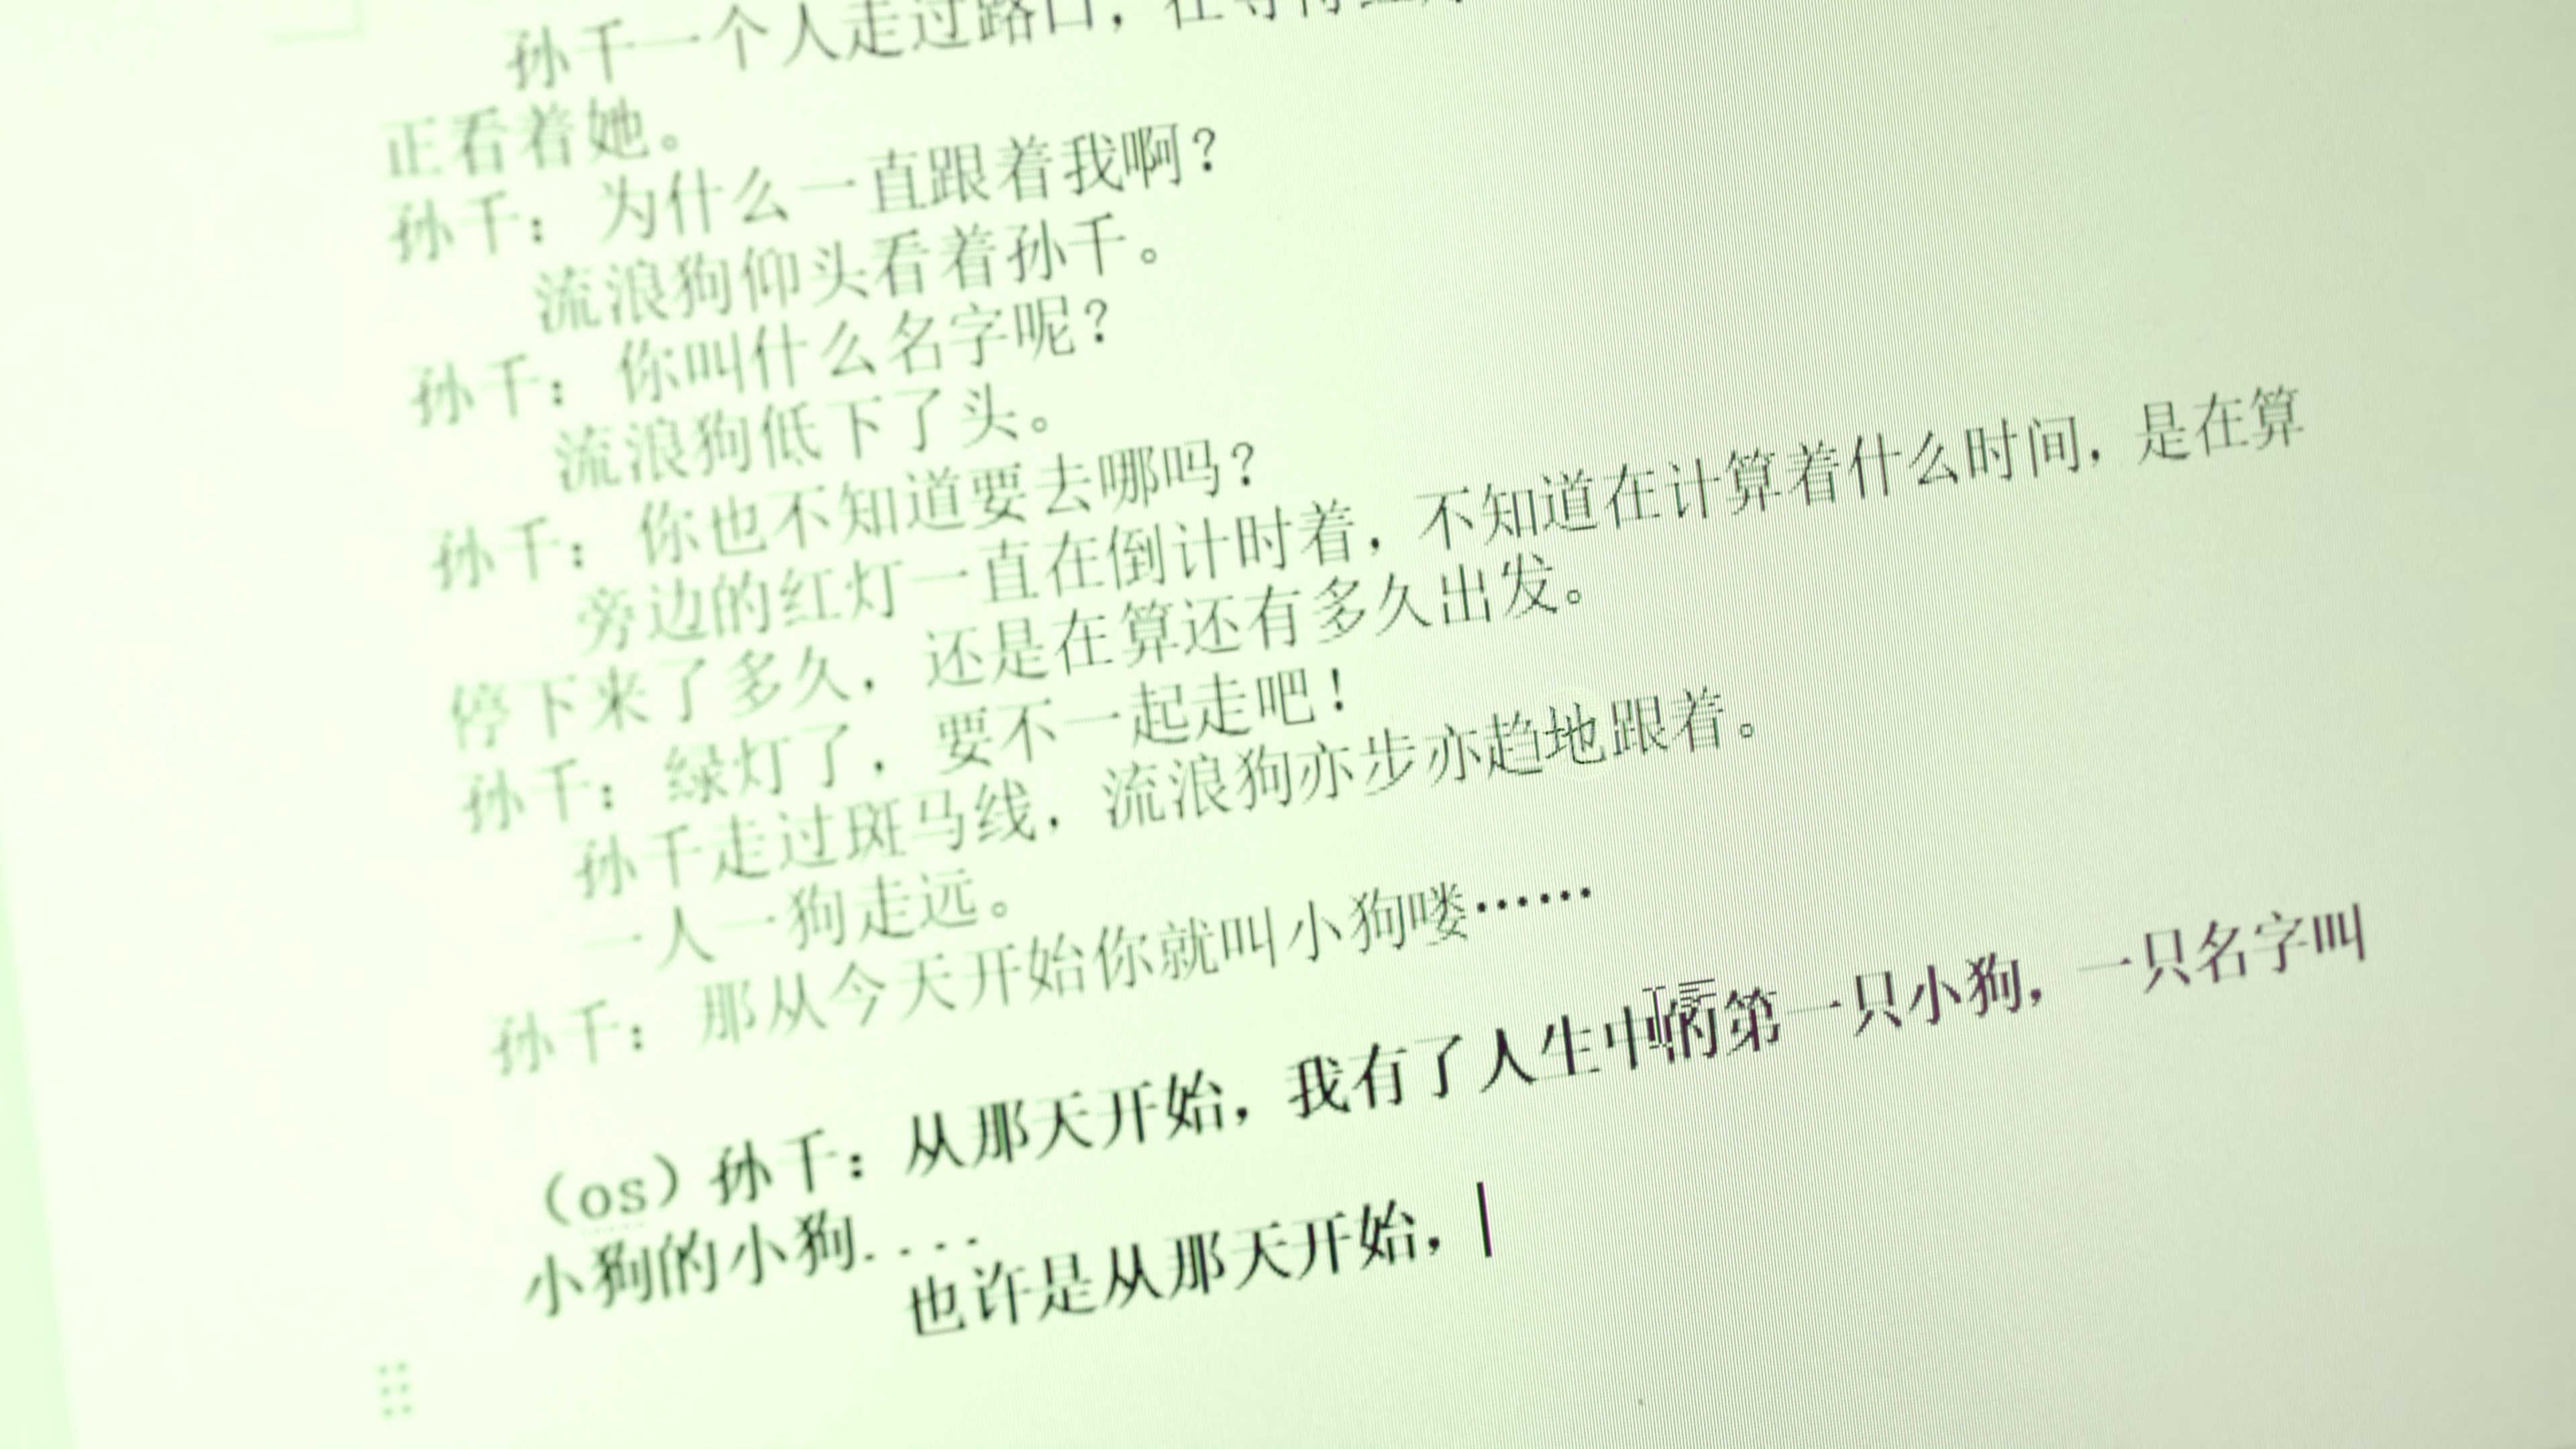 孙千一个人走过路口，在等待红
正看着她。
孙千：为什么一直跟着我啊？
流浪狗仰头看着孙千。
孙千：你叫什么名字呢？
流浪狗低下了头。
孙千：你也不知道要去哪吗？
旁边的红灯一直在倒计时着，不知道在计算着什么时间，是在算
停下来了多久，还是在算还有多久出发。
孙千：绿灯了，要不一起走吧！
孙千走过斑马线，流浪狗亦步亦趋地跟着。
一人一狗走远。
孙千：那从今天开始你就叫小狗喽······
（os）孙千：从那天开始，我有了人生中的第一只小狗，一只名字叫
小狗的小狗....
也许是从那天开始，